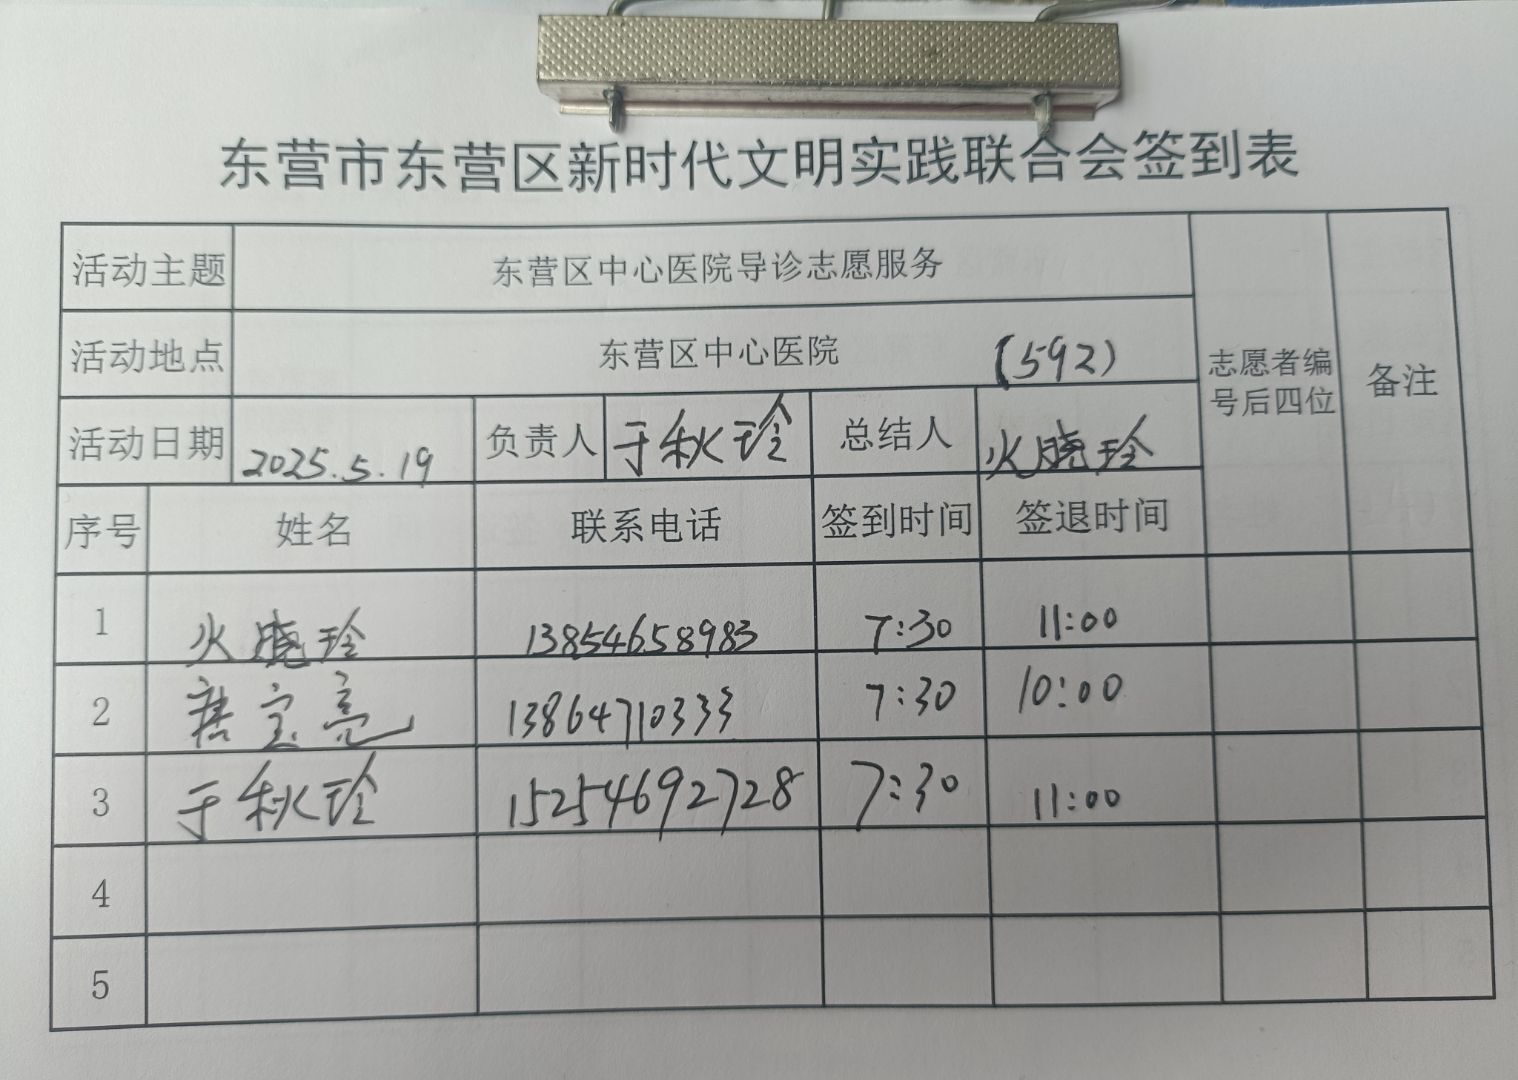 东营市东营区新时代文明实践联合会签到表
活动主题 东营区中心医院导诊志愿服务
活动地点 东营区中心医院 (592) 志愿者编号后四位 备注
活动日期 2025.5.19 负责人 于秋玲 总结人 火晓玲
序号 姓名 联系电话 签到时间 签退时间
1 火晓玲 13854658983 7:30 11:00
2 唐宝亮 13864710333 7:30 10:00
3 于秋玲 15254692728 7:30 11:00
4
5